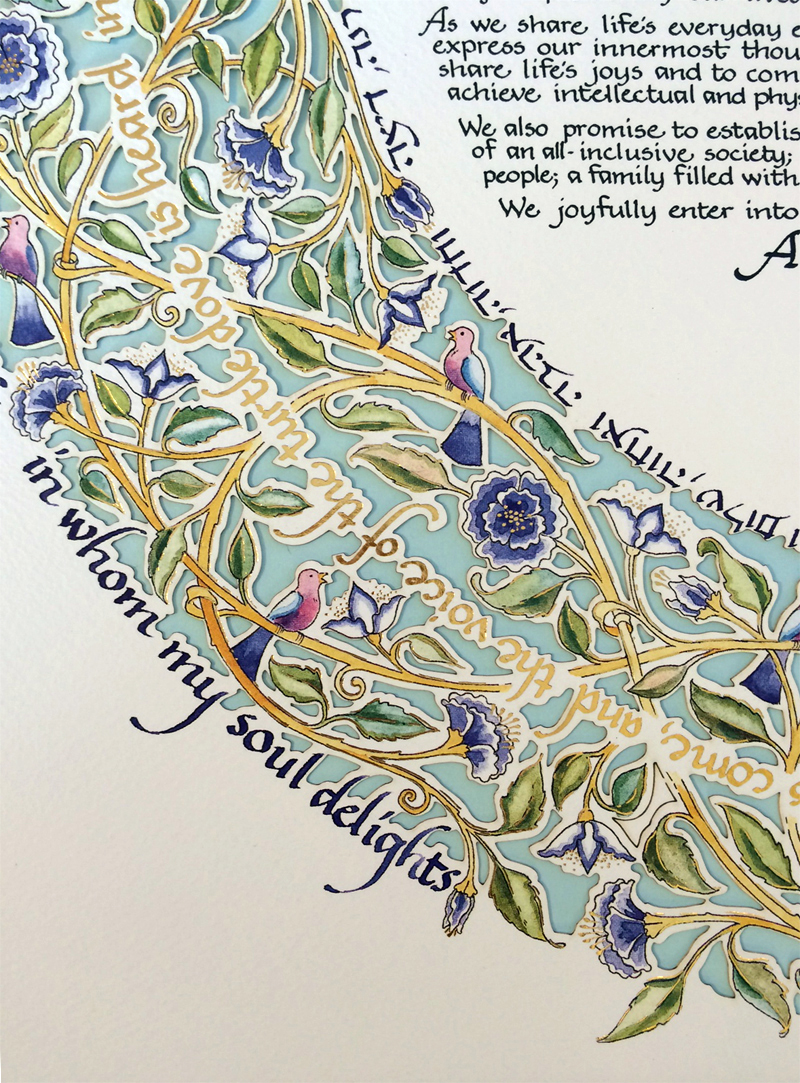 As we share life's everyday e
express our innermost thou
share life's joys and to com
achieve intellectual and phys
We also promise to establis
of an all-inclusive society;
people; a family filled with
We joyfully enter into
A
שלום
s come, and the voice of the turtle dove is heard in
in whom my soul delights